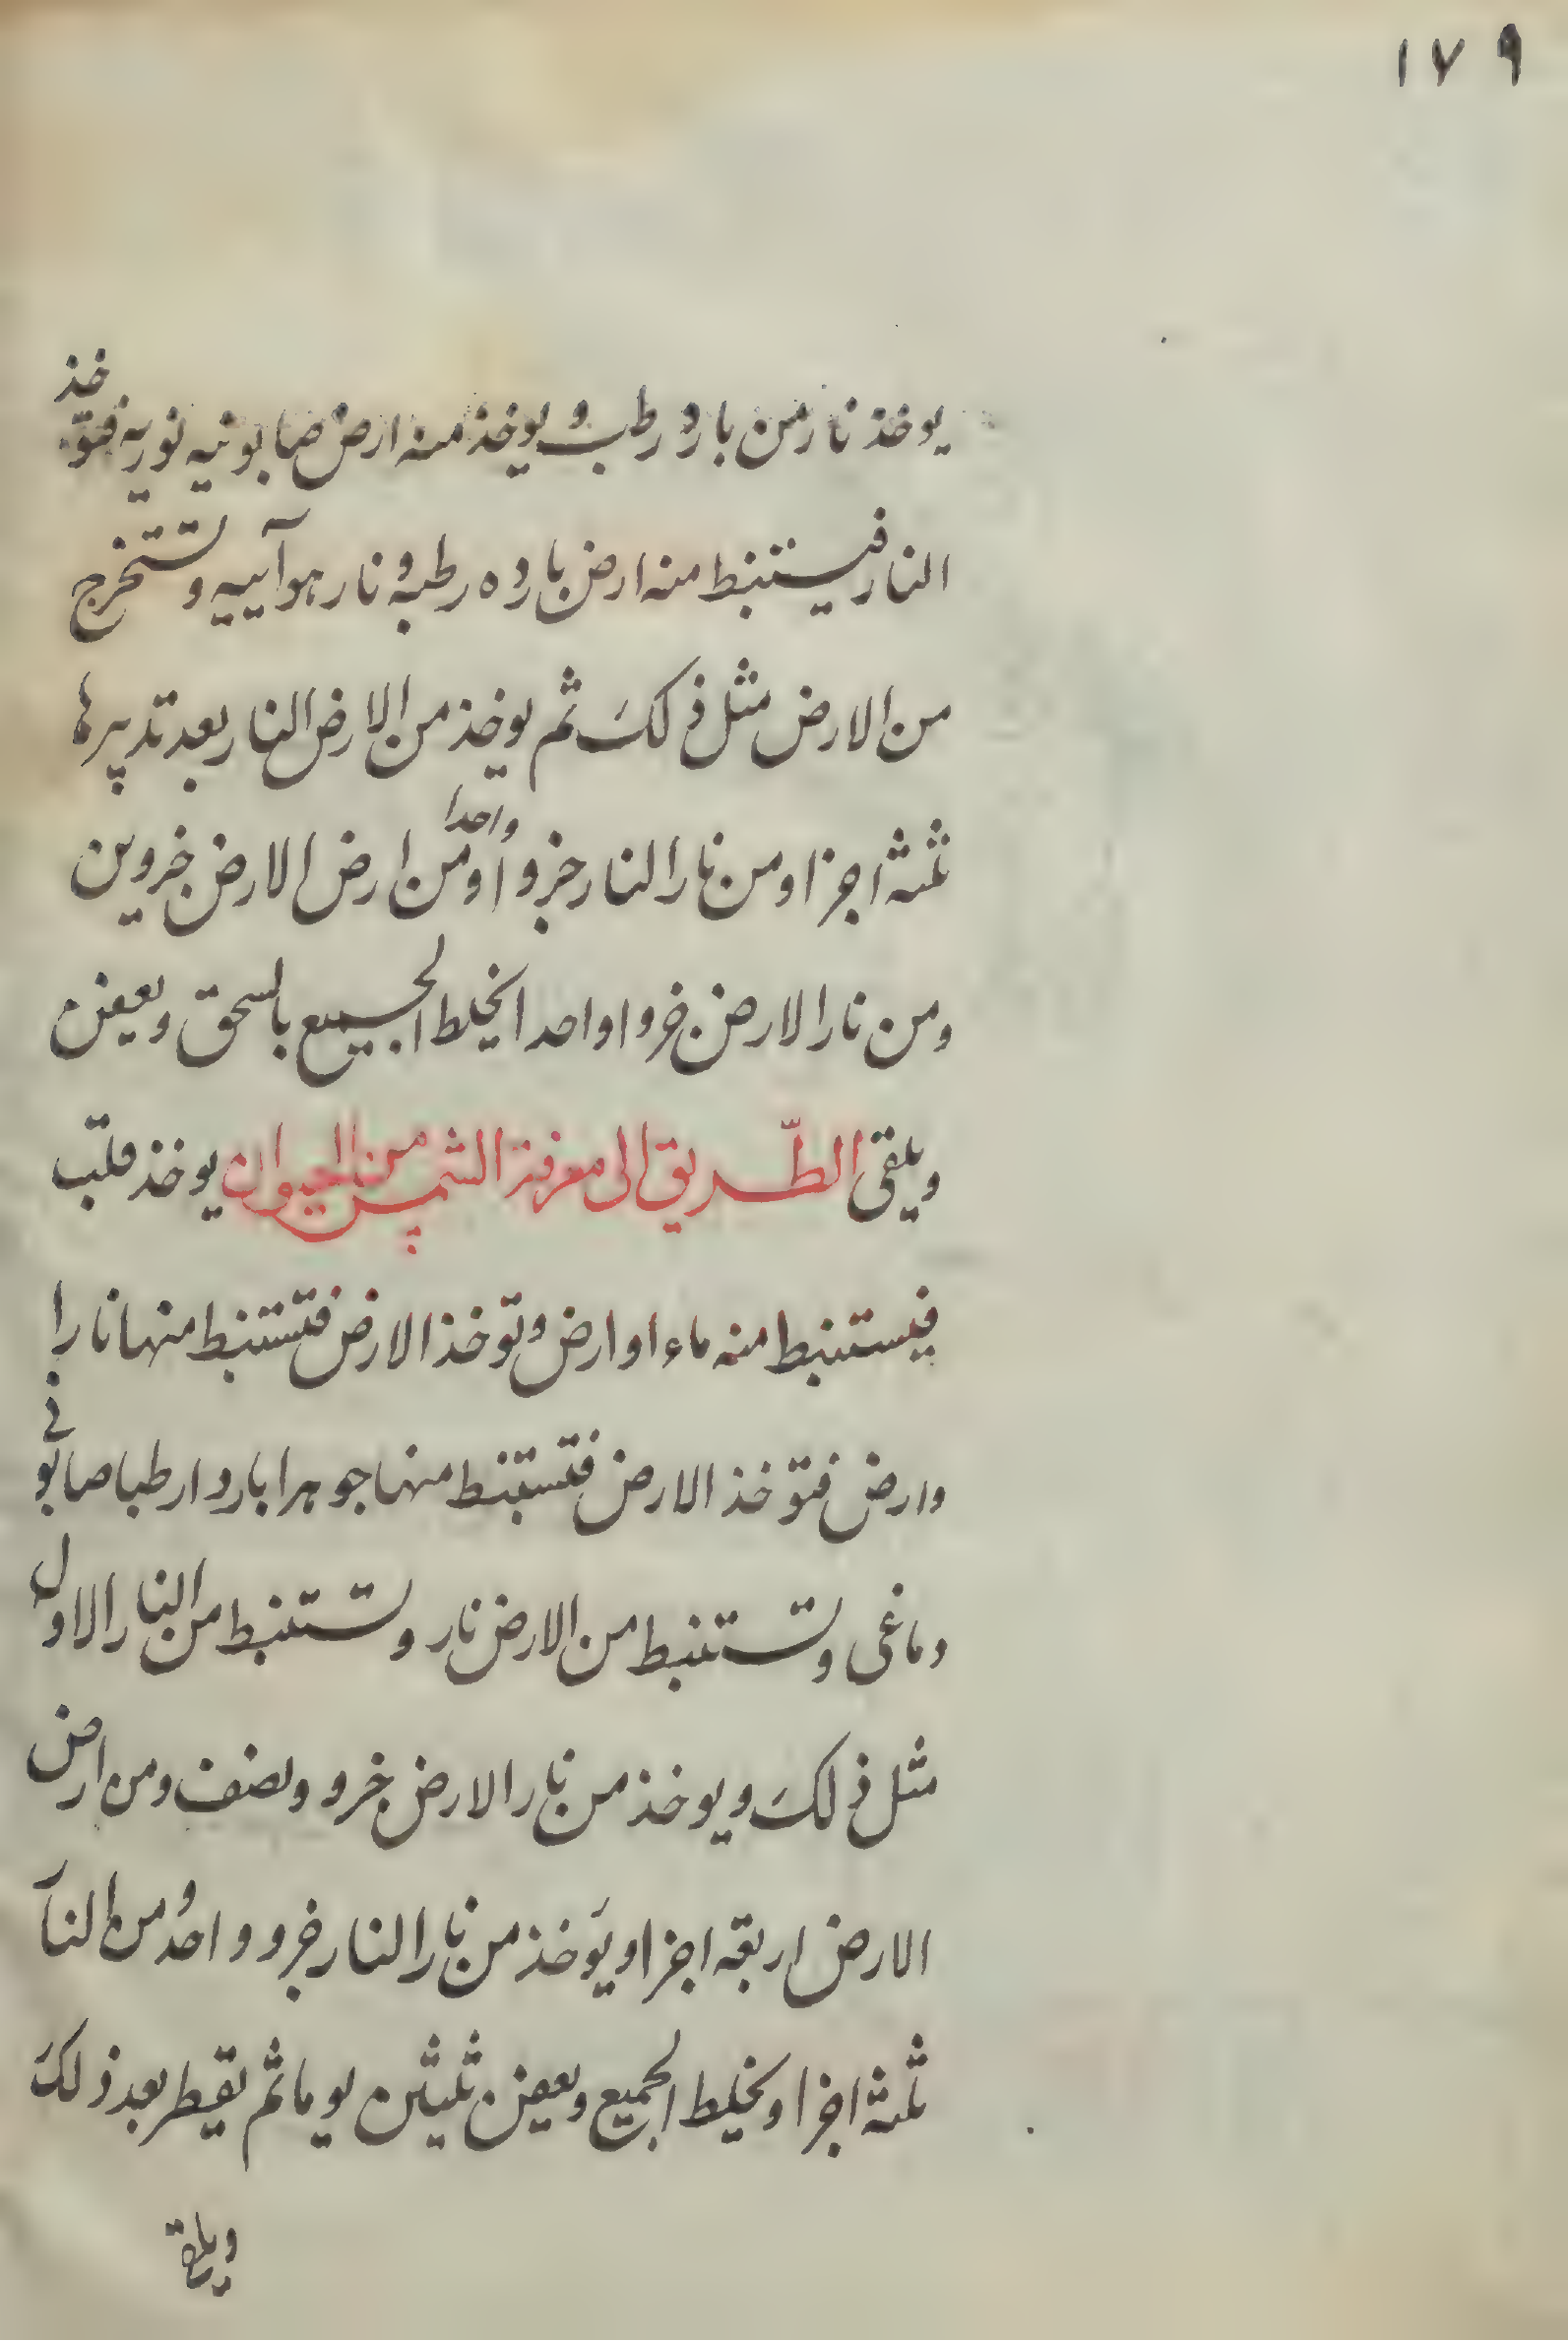 ١٧٩
يوخذ نار من بارد رطب ويوخذ منه ارض صابونيه نوريه فتوخذ
النار فيستنبط منه ارض بارده رطبه ونار هوآييه وتستخرج
من الارض مثل ذلك ثم يوخذ من الارض النار بعد تدبيرها
ثلثة اجزا ومن نار النار جزوا واحدا ومن ارض الارض جزوين
ومن نار الارض جزوا واحدا يخلط الجميع بالسحق ويعفن
ويلقى الطّريق الى معرفة الشمس من الحيوان يوخذ قلب
فيستنبط منه ماء وارض وتوخذ الارض فتستنبط منها نارا
وارض فتوخذ الارض فتستنبط منها جوهرا باردا رطبا صابونى
دماغى وتستنبط من الارض نار وتستنبط من النار الاول
مثل ذلك ويوخذ من نار الارض جزو ونصف ومن ارض
الارض اربعة اجزا ويوخذ من نار النار جزو واحد ومن النآر
ثلثة اجزا ويخلط الجميع ويعفن ثلثين يوما ثم يقطر بعد ذلك
ويلقى